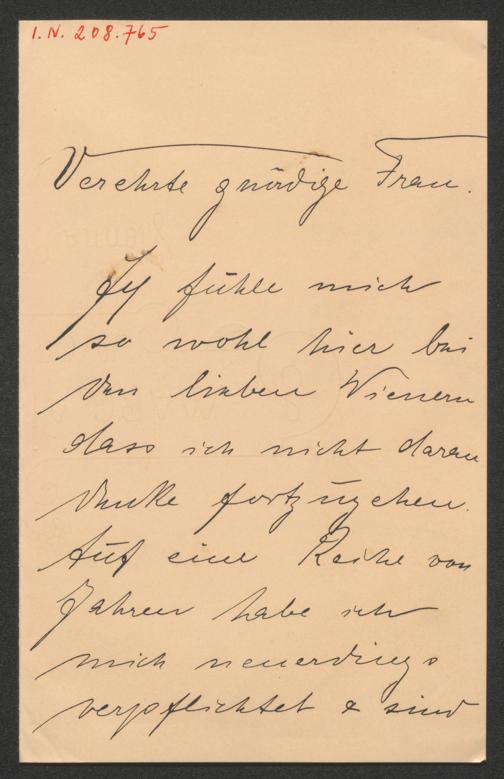 I.N. 208.765
Verehrte gnädige Frau.
Ich fühle mich
so wohl hier bei
den lieben Wienern
dass ich nicht daran
denke fortzugehen.
Auf eine Reihe von
Jahren habe ich
mich neuerdings
verpflichtet & sind